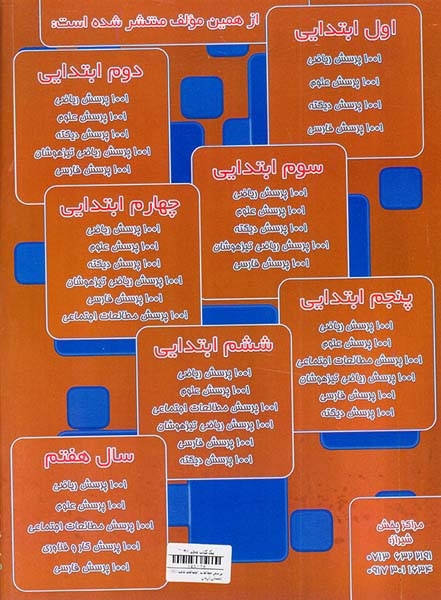 از همین مؤلف منتشر شده است:
اول ابتدایی
۱۰۰۱ پرسش ریاضی
۱۰۰۱ پرسش علوم
۱۰۰۱ پرسش دیکته
۱۰۰۱ پرسش فارسی
دوم ابتدایی
۱۰۰۱ پرسش ریاضی
۱۰۰۱ پرسش علوم
۱۰۰۱ پرسش دیکته
۱۰۰۱ پرسش ریاضی تیزهوشان
۱۰۰۱ پرسش فارسی
سوم ابتدایی
۱۰۰۱ پرسش ریاضی
۱۰۰۱ پرسش علوم
۱۰۰۱ پرسش دیکته
۱۰۰۱ پرسش ریاضی تیزهوشان
۱۰۰۱ پرسش فارسی
چهارم ابتدایی
۱۰۰۱ پرسش ریاضی
۱۰۰۱ پرسش علوم
۱۰۰۱ پرسش دیکته
۱۰۰۱ پرسش ریاضی تیزهوشان
۱۰۰۱ پرسش فارسی
۱۰۰۱ پرسش مطالعات اجتماعی
پنجم ابتدایی
۱۰۰۱ پرسش ریاضی
۱۰۰۱ پرسش علوم
۱۰۰۱ پرسش مطالعات اجتماعی
۱۰۰۱ پرسش ریاضی تیزهوشان
۱۰۰۱ پرسش فارسی
۱۰۰۱ پرسش دیکته
ششم ابتدایی
۱۰۰۱ پرسش ریاضی
۱۰۰۱ پرسش علوم
۱۰۰۱ پرسش مطالعات اجتماعی
۱۰۰۱ پرسش ریاضی تیزهوشان
۱۰۰۱ پرسش فارسی
۱۰۰۱ پرسش دیکته
سال هفتم
۱۰۰۱ پرسش ریاضی
۱۰۰۱ پرسش علوم
۱۰۰۱ پرسش مطالعات اجتماعی
۱۰۰۱ پرسش کار و فناوری
۱۰۰۱ پرسش فارسی
مراکز پخش
شیراز:
۰۷۱۳ ۶۳۲ ۲۱۹۱
۰۹۱۷ ۳۰۱ ۱۶۳۴